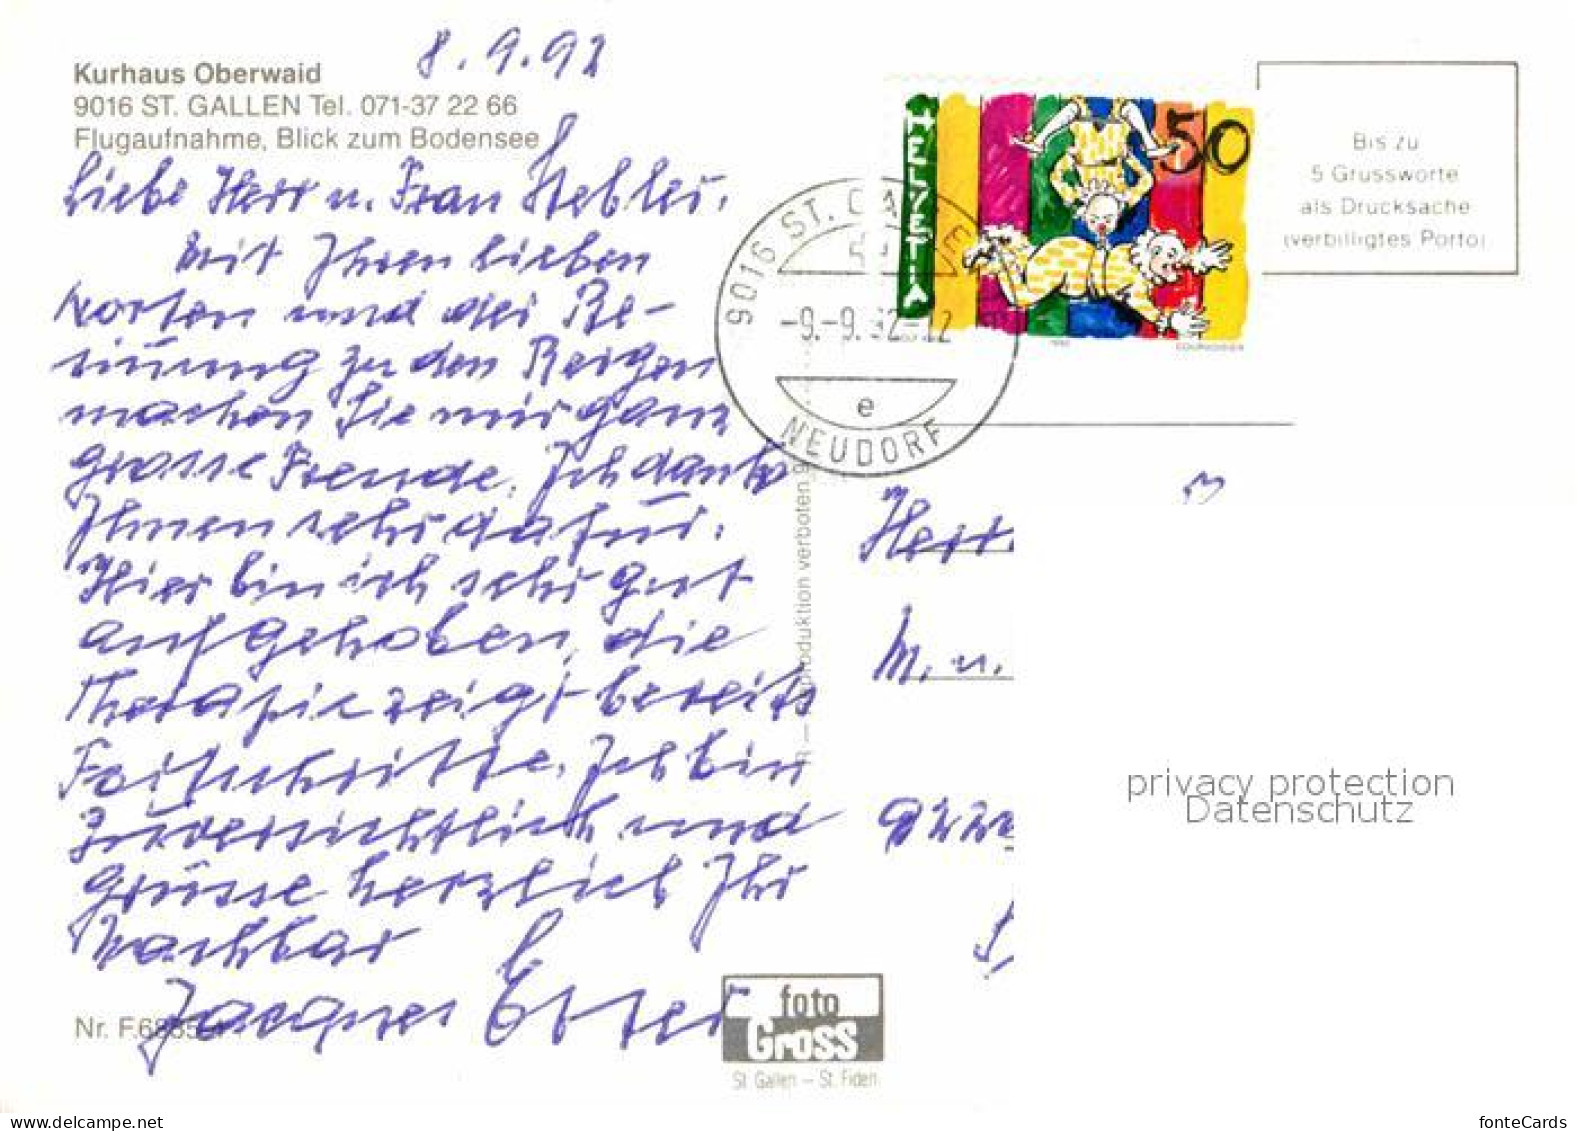 8.9.92
Kurhaus Oberwaid
9016 ST. GALLEN Tel. 071-37 22 66
Flugaufnahme, Blick zum Bodensee
Liebe Herr u. Frau
mit Ihren lieben
Worten und der Be-
zu den Reigen
machen Sie mir ganz
grosse Freude. Ich danke
Ihnen sehr dafür.
Hier bin ich sehr gut
aufgehoben, die
Therapie zeigt bereits
Fortschritte. Ich bin
zuversichtlich und
grüsse herzlich Ihr
Nachbar
Jacques
Nr. F.
foto
Gross
St. Gallen – St. Fiden
produktion verboten
HELVETIA
50
1992
COURVOISIER
9016 ST. GALLEN
-9.-9.92-12
e
NEUDORF
Bis zu
5 Grussworte
als Drucksache
(verbilligtes Porto)
Herr
M. u.
privacy protection
Datenschutz
www.delcampe.net
fonteCards